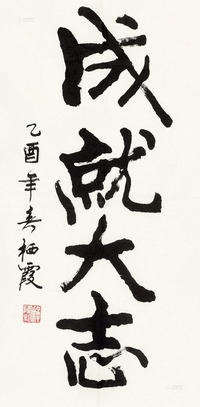 成就大志
乙酉年春栖霞